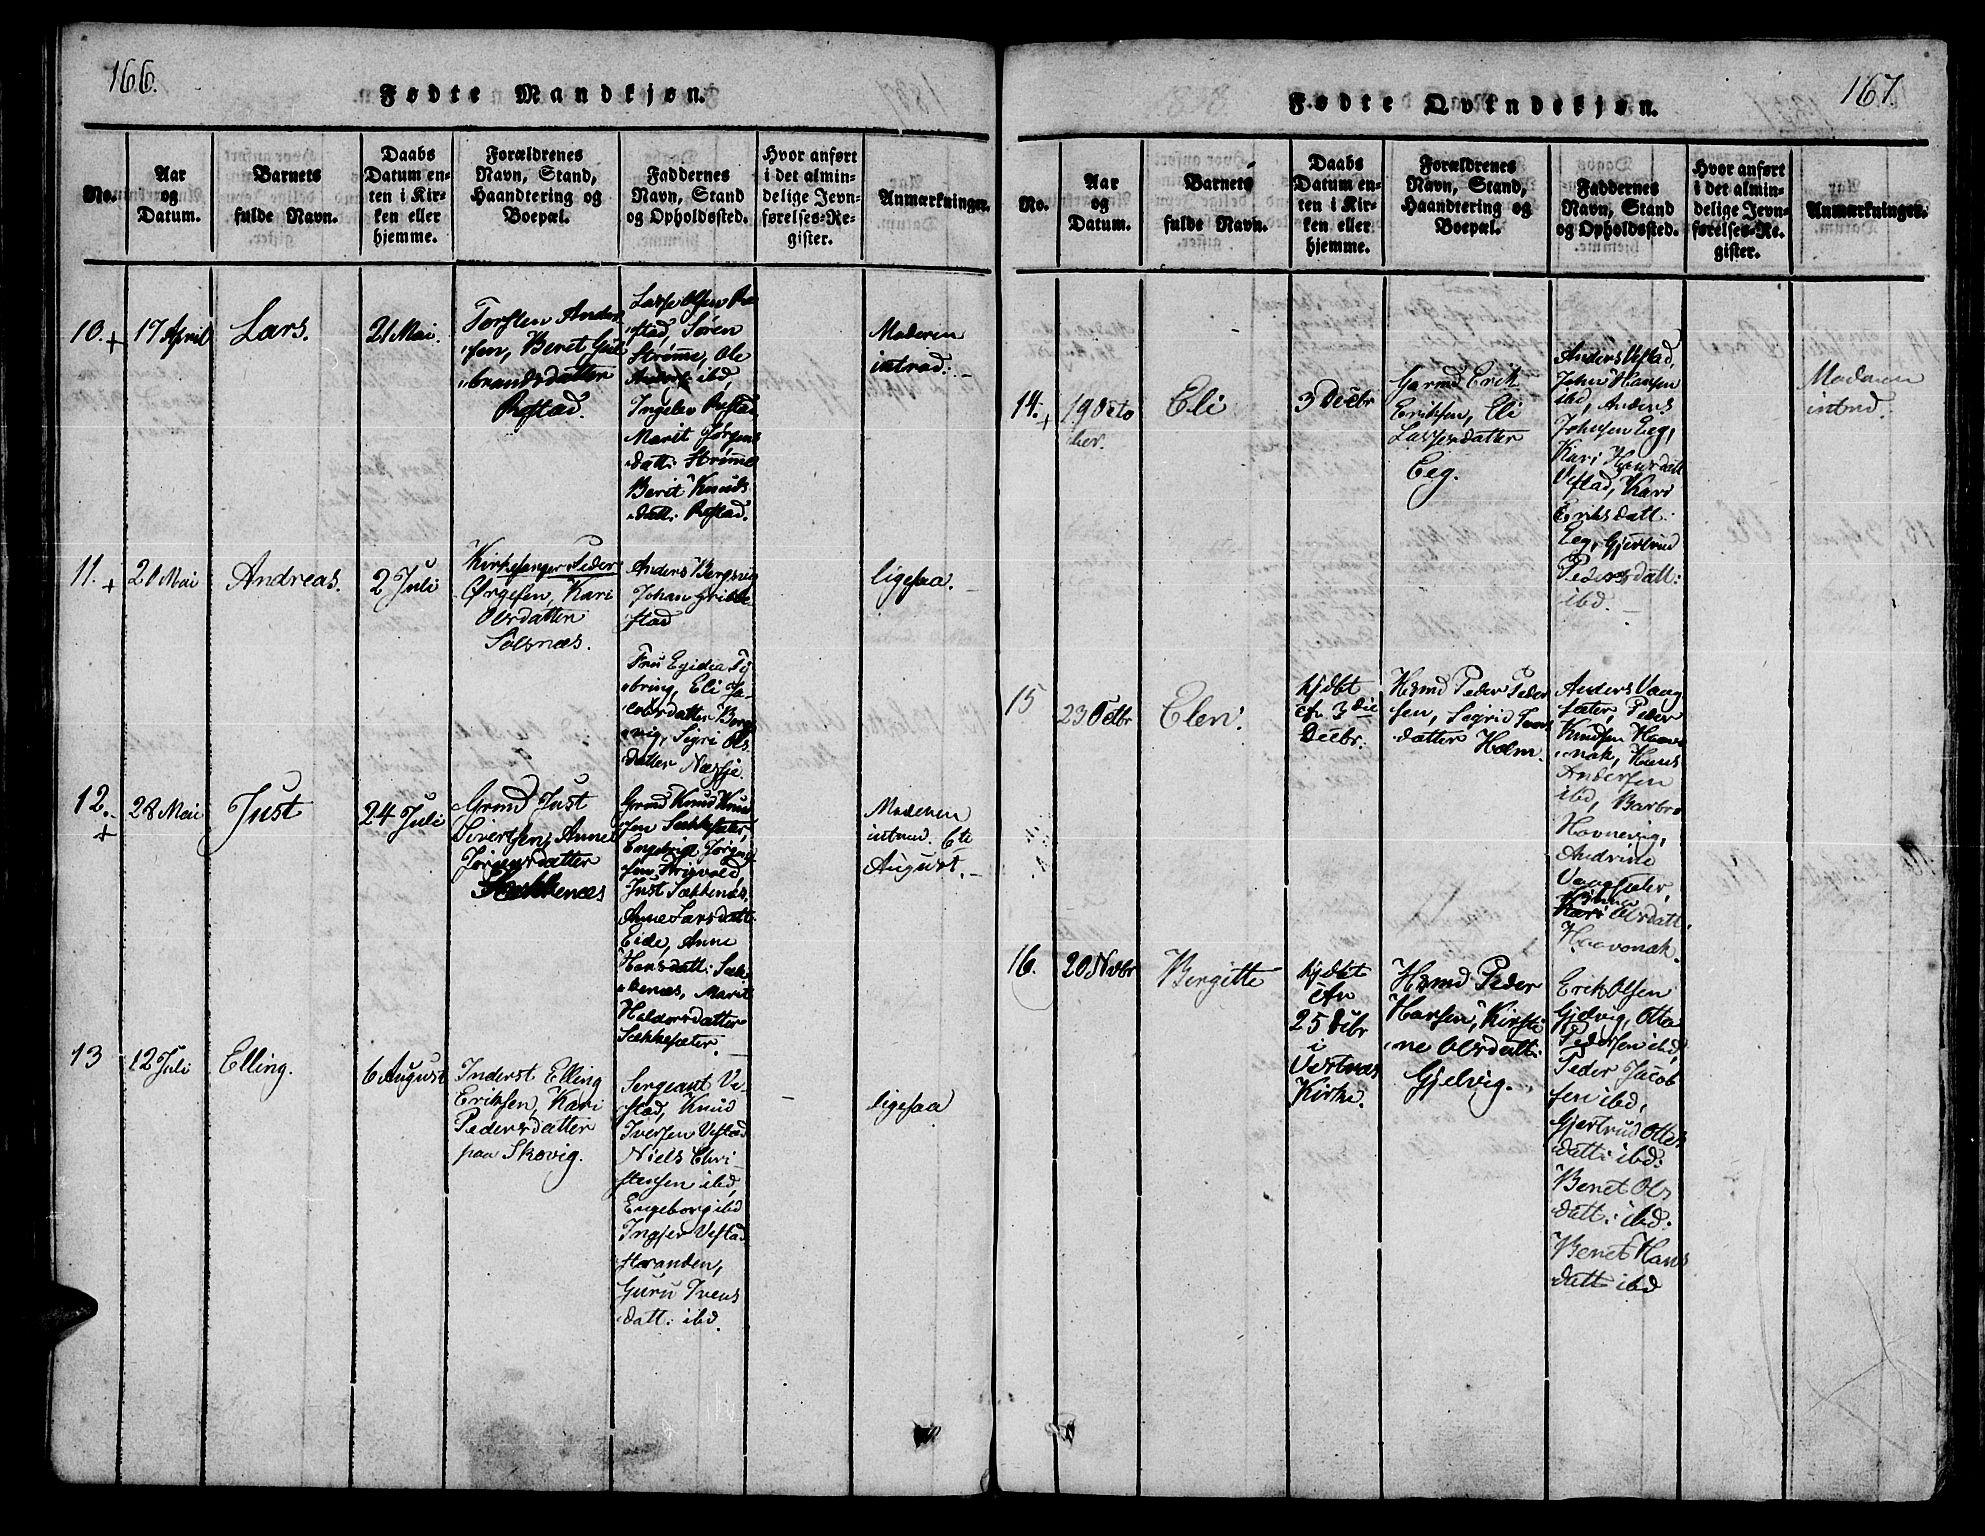 166.
Fødte Mandkjøn.
No.
Aar
og
Datum.
Barnets
fulde Navn.
Daabs
Datum en-
ten i Kir-
ken eller
hjemme.
Forældrenes
Navn, Stand,
Haandtering og
Boepæl.
Faddernes
Navn, Stand
og Opholdssted.
Hvor anført
i det almin-
delige Jevn-
førelses-Re-
gister.
Anmærkninger.
10.+
17 April
Lars.
21 Mai.
Torsten Ander
sen, Beret Gul
brandsdatter
Røstad.
Lasse Olsen Rø
stad, Søren
Strømme, Ole
ibd,
Ingelev Røstad
Marit Jørgens
datt: Strømme
Berit Knuds
datt: Røstad.
Moderen
introd:
11.+
20 Mai
Andreas.
2 Juli
Kirkesanger Peder
Ørgesen, Kari
Olsdatter
Sølsnæs.
Anders Bergsvig
Johan Gribbe
stad
Fru Egidia
Eli Ja-
cobsdatter Berg
vig, Sigri Ols
datter Næsje.
ligesaa.
12.+
28 Mai
Just
24 Juli
Grmd Just
Sivertsen, Anne
Jørgensdatter
Sækkenæs
Grmd Knud Knud
sen Sækkesæter,
Engebrigt Jørgen
sen
Just Sækkenæs,
Anne Larsdatt:
Eide, Anne
Hansdatt: Sæk
kenæs, Marit
Haldorsdatter
Sækkesæter.
Moderen
introd. 6te
August.
13
12 Juli
Elling.
6 August
Inderst Elling
Eriksen, Kari
Pedersdatter
paa Skovig.
Sergeant Ve
stad, Knud
Iversen Vestad
Niels Chri
stensen ibd,
Engeborg ibd
Ingser Vestad
stranden,
Guru Ivers
datt: ibd.
ligesaa
167.
Fødte Qvindekjøn.
No.
Aar
og
Datum.
Barnets
fulde Navn.
Daabs
Datum en-
ten i Kir-
ken eller
hjemme.
Forældrenes
Navn, Stand,
Haandtering og
Boepæl.
Faddernes
Navn, Stand
og Opholdssted.
Hvor anført
i det almin-
delige Jevn-
førelses-Re-
gister.
Anmærkninger.
14.+
19 Octo
ber.
Eli
3 Decbr
Garmd Erik
Eriksen, Eli
Lassesdatter
Eeg.
Anders Vestad,
John Hansen
ibd, Anders
Johnsen Eeg,
Kari Hansdatt
Vestad, Kari
Eriksdatt:
Eeg, Gjertrud
Pedersdatt:
ibd.
Moderen
introd.
15
23 Octbr
Elen.
hjdbt
cfr 3die
Decbr.
Hsmd Peder Peder
sen, Sigrid Ivers
datter Holm.
Anders Vaag
sæter, Peder
Knudsen Haavo
nak, Hans
Andersen
ibd, Barbro
Hovnevig,
Andrine
Vaagsæter,
Olsdatt.
Haavonak.
16.
20 Nvbr
Bergitte
hjdbt
cfr
25 Dcbr
i
Vestnæs
Kirke.
Hsmd Peder
Hansen, Kirsti
ne Olsdatt:
Gjelvig.
Erik Olsen
Gjelvig, Otta
Pedersen ibd,
Peder Jacob
sen ibd,
Gjertrud Ottes
datt: ibd.
Beret Ols
datt: ibd.
Beret Hans
datt ibd